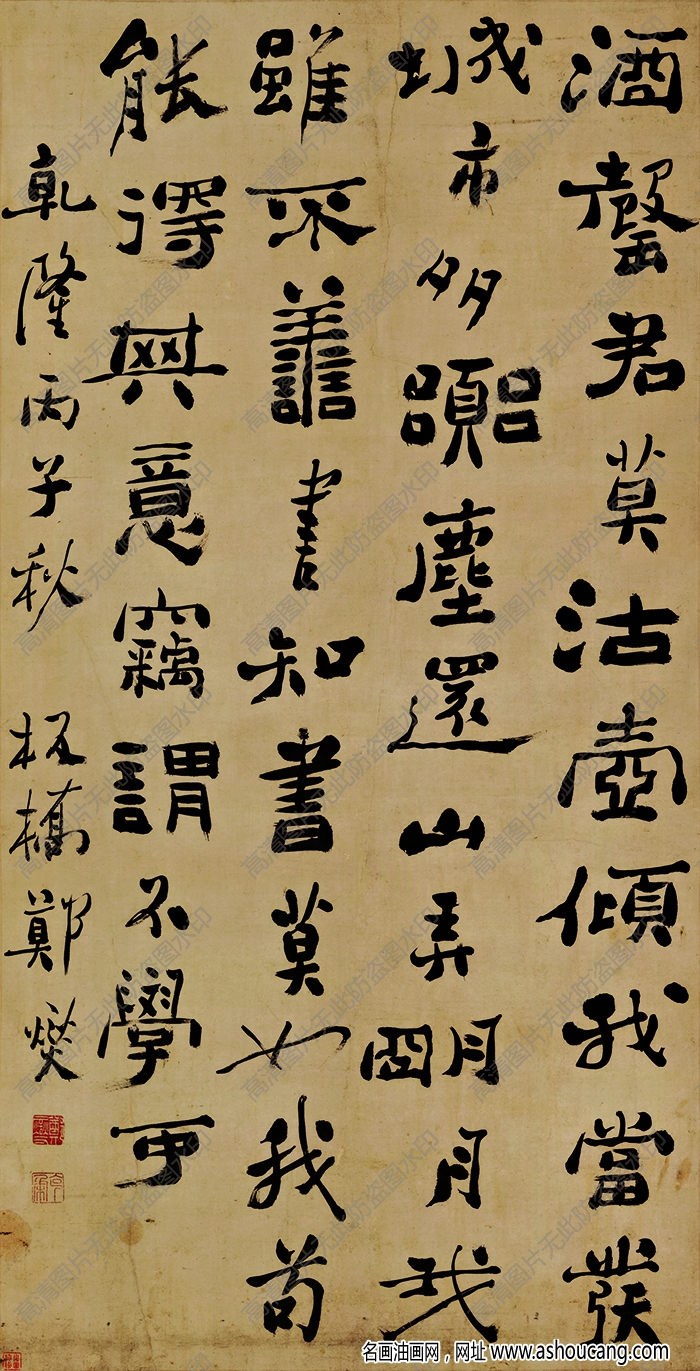 酒罄君莫沽壺傾我當發
城市多囂塵還山弄明月我
雖不善書知書莫如我苟
能得其意竊謂不學可
乾隆丙子秋 板橋鄭燮
名画油画网，网址 www.ashoucang.com
高清图片无此防盗图水印